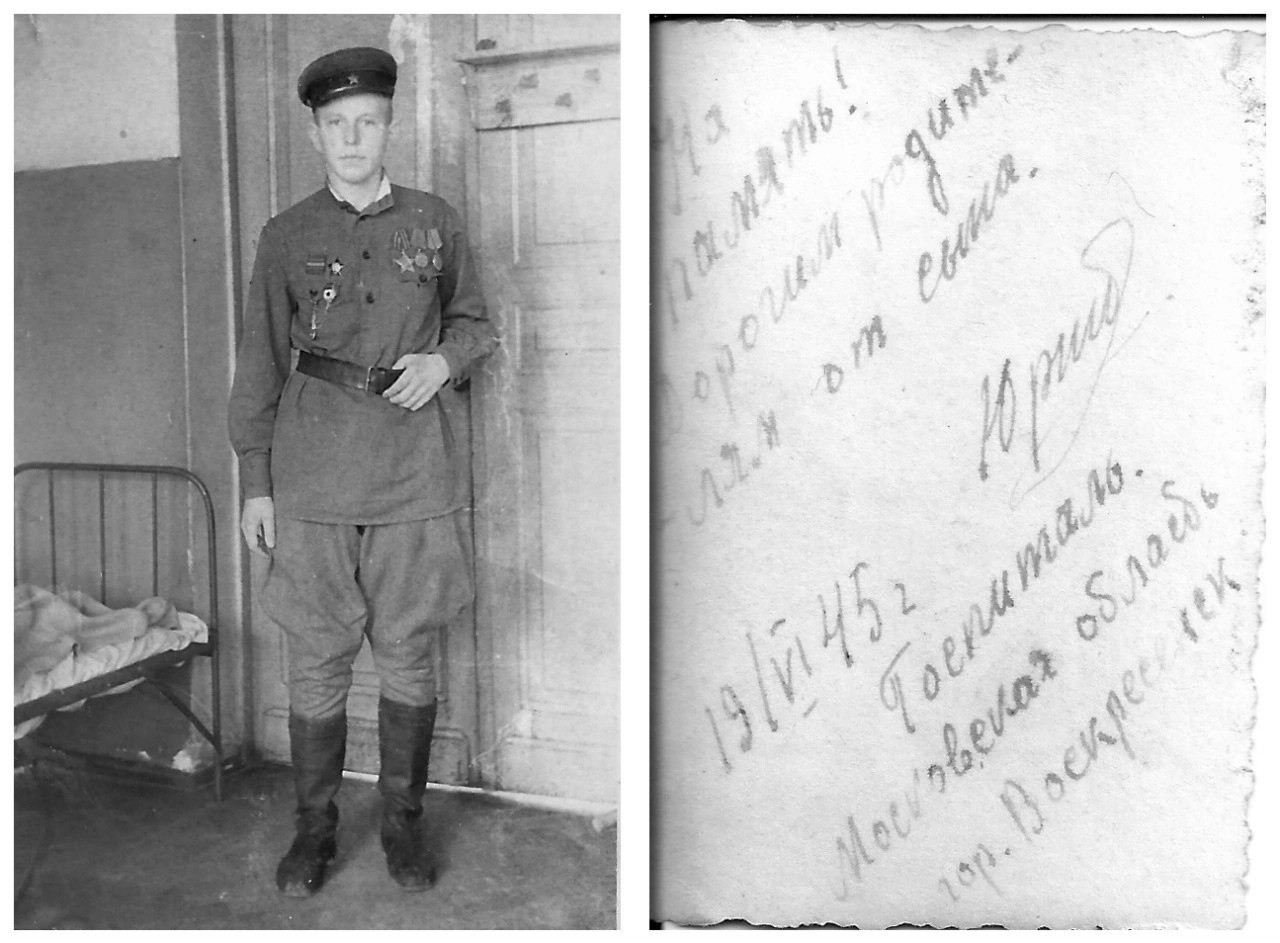 На
память!
Дорогим родите-
-лям от сына.
Юрий.
19/VI 45 г
Госпиталь.
Московская область
гор. Воскресенск